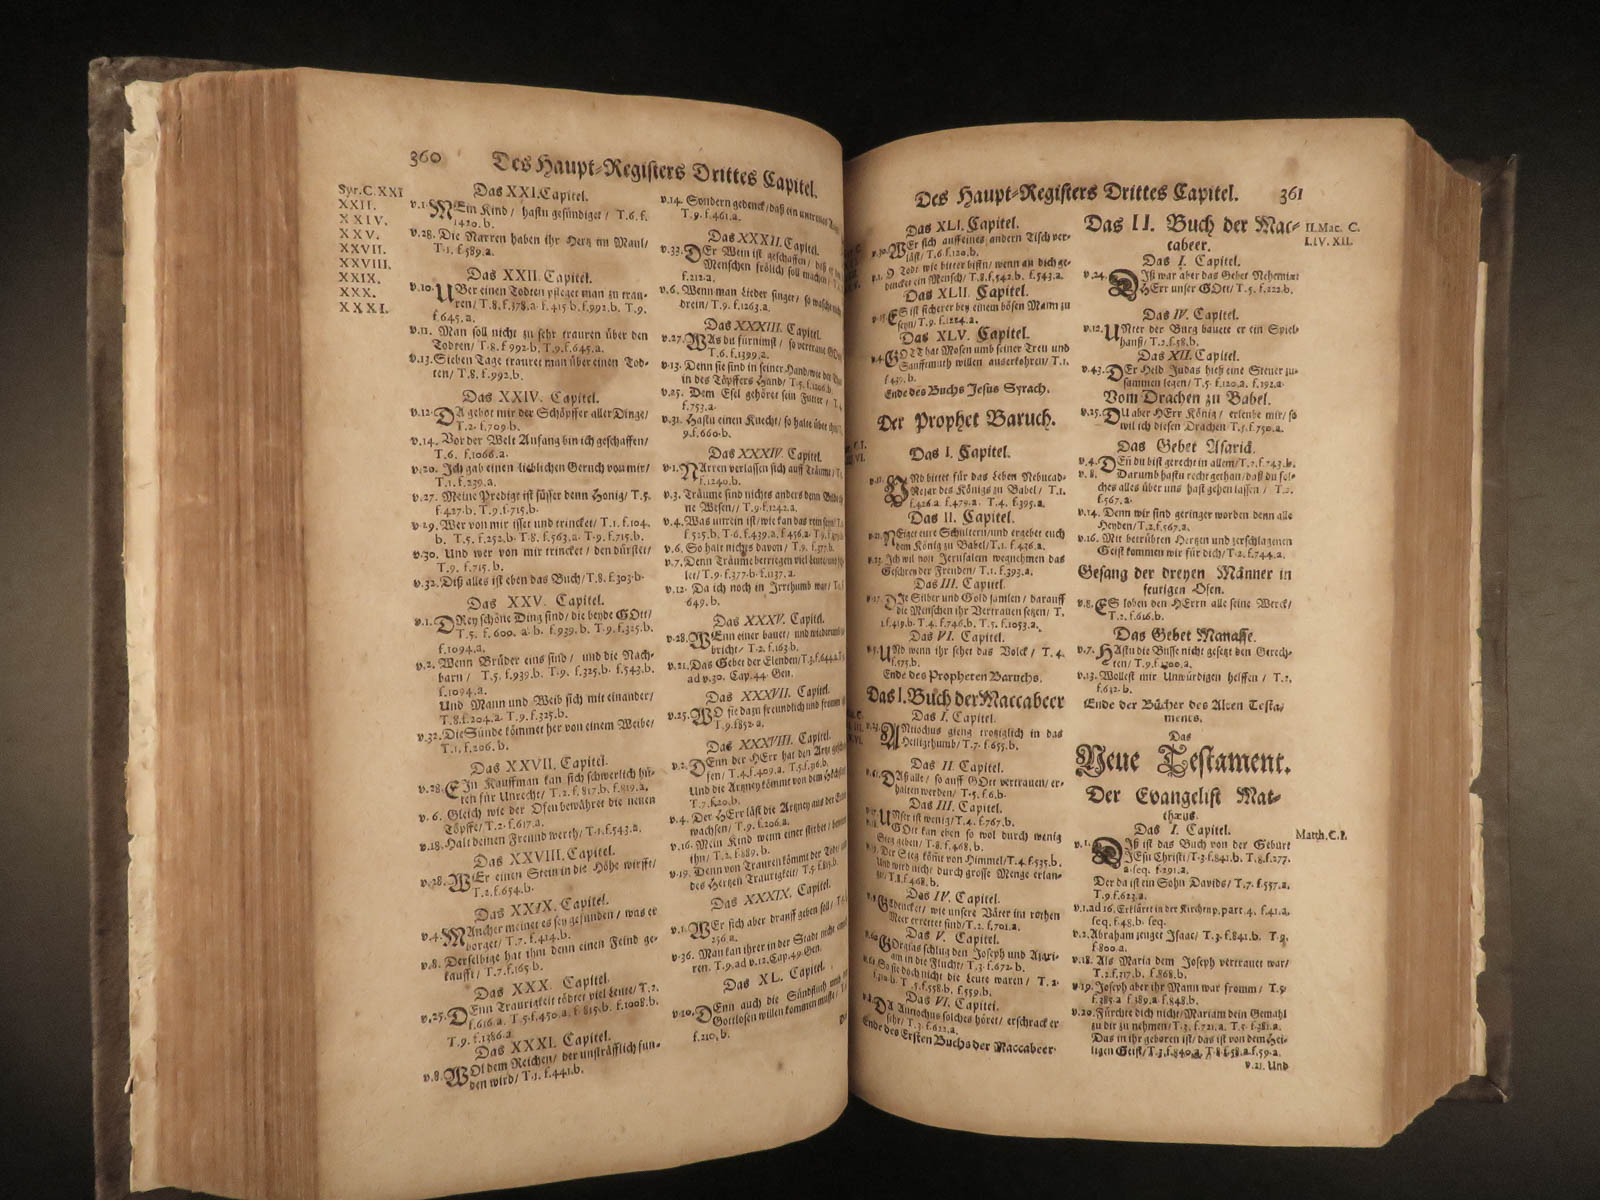 360 Des Haupt-Registers Drittes Capitel.
Syr. C. XXI
XXII.
XXIV.
XXV.
XXVII.
XXVIII.
XXIX.
XXX.
XXXI.
Das XXI. Capitel.
v.1. MEin Kind / hastu gesündiget / T.6. f.
1420. b.
v.28. Die Narren haben ihr Hertz im Maul/
T.1. f.589.a.
Das XXII. Capitel.
v.10. UBer einen Todten pfleget man zu trau-
ren/ T.8. f.378.a. f.415 b. f.992.b. T.9.
f.645.a.
v.11. Man soll nicht zu sehr trauren über den
Todten/ T.8. f.992.b. T.9. f.645.a.
v.13. Sieben Tage trauret man über einen Tod-
ten/ T.8. f.992.b.
Das XXIV. Capitel.
v.12. DA gebot mir der Schöpffer aller Dinge/
T.2. f.709.b.
v.14. Vor der Welt Anfang bin ich geschaffen/
T.6. f.1066.a.
v.20. Ich gab einen lieblichen Geruch von mir/
T.1. f.239.a.
v.27. Meine Predigt ist süsser denn Honig/ T.5.
f.427.b. T.9. f.715.b.
v.29. Wer von mir isset und trincket/ T.1. f.104.
b. T.5. f.252.b. T.8. f.563.a. T.9. f.715.b.
v.30. Und wer von mir trincket / den dürstet/
T.9. f.715.b.
v.32. Diß alles ist eben das Buch/ T.8. f.303.b.
Das XXV. Capitel.
v.1. DRey schöne Ding sind/ die beyde GOtt/
T.5. f.600. a. b. f.939.b. T.9. f.325.b.
f.1094.a.
v.2. Wenn Brüder eins sind / und die Nach-
barn / T.5. f.939.b. T.9. f.325.b. f.543.b.
f.1094.a.
Und Mann und Weib sich mit einander/
T.8. f.204.a. T.9. f.325.b.
v.32. Die Sünde kömmet her von einem Weibe/
T.1. f.206.b.
Das XXVII. Capitel.
v.28. EIn Kauffman kan sich schwerlich hü-
ten für Unrecht/ T.2. f.817.b. f.819.a.
v.6. Gleich wie der Ofen bewähret die neuen
Töpffe/ T.2. f.617.a.
v.18. Halt deinen Freund werth/ T.1. f.543.a.
Das XXVIII. Capitel.
v.28. WEr einen Stein in die Höhe wirfft/
T.2. f.654.b.
Das XXIX. Capitel.
v.4. MAncher meinet es sey gefunden / was er
borget/ T.7. f.414.b.
v.8. Derselbige hat ihm denn einen Feind ge-
kaufft / T.7. f.165.b.
Das XXX. Capitel.
v.25. DEnn Traurigkeit tödtet viel Leute/ T.2.
f.616.a. T.5. f.450.a. f.815.b. f.1008.b.
T.9. f.1386.a
Das XXXI. Capitel.
v.8. WOl dem Reichen/ der unsträfflich fun-
den wird/ T.1. f.441.b.
v.14. Sondern gedenck/ daß ein untreues
T.9. f.461.a.
Das XXXII. Capitel.
v.33. DEr Wein ist geschaffen / daß er
Menschen frölich soll machen/
f.212.a.
v.6. Wenn man Lieder singet/ so wasche nicht
drein/ T.9. f.1263.a.
Das XXXIII. Capitel.
v.27. WAs du fürnimst / so vertraue GOtt
T.6. f.1399.a.
v.13. Denn sie sind in seiner Hand/ wie der Thon
in des Töpffers Hand/ T.5. f.1206.b.
v.25. Dem Esel gehöret sein Futter /
f.753.a.
v.31. Hastu einen Knecht/ so halte über ihm/
9. f.660.b.
Das XXXIV. Capitel.
v.1. NArren verlassen sich auff Träume/
f.1240.b.
v.3. Träume sind nichts anders denn Bilde
ne Wesen// T.9. f.1242.a.
v.4. Was unrein ist/ wie kan das rein seyn/
f.515.b. T.6. f.439.a. f.456.a. T.9.
v.6. So halt nichts davon/ T.9. f.377.b.
v.7. Denn Träume betriegen viel Leute/
let/ T.9. f.377.b. f.1137.a.
v.12. Da ich noch in Irrthumb war/
649.b.
Das XXXV. Capitel.
v.28. WEnn einer bauet / und wiederumb
bricht/ T.2. f.163.b.
v.21. Das Gebet der Elenden/ T.3. f.644.a.
ad v.30. Cap.44. Gen.
Das XXXVII. Capitel.
v.25. WO sie dazu freundlich und fromm
T.9. f.852.a.
Das XXXVIII. Capitel.
v.2. DEnn der HErr hat den Artzt geschaf-
fen/ T.4. f.409.a. T.5. f.116.b.
Und die Artzney kömmt von dem Höchsten
T.7. f.20.b.
v.4. Der HErr läst die Artzney aus der Erden
wachsen/ T.9. f.206.a.
v.16. Mein Kind wenn einer stirbet / beweine
ihn/ T.2. f.889.b.
v.19. Denn von Trauren kömmt der Tod/
des Hertzen Traurigkeit/ T.5. f.815.b.
Das XXXIX. Capitel.
v.1. WEr sich aber drauff geben soll/
256.a.
v.36. Man kan ihrer in der Stadt nicht entbeh-
ren. T.9. ad v.12. Cap.49. Gen.
Das XL. Capitel.
v.10. DEnn auch die Sündfluth umb
Gottlosen willen kommen muste/
f.210.b.
Des Haupt-Registers Drittes Capitel. 361
Das XLI. Capitel.
v.30. WEr sich auff eines andern Tisch ver-
läst/ T.6. f.120.b.
v.1. O Tod / wie bitter bistu/ wenn an dich ge-
dencket ein Mensch/ T.8. f.542.b. f.543.a.
Das XLII. Capitel.
v.15. ES ist sicherer bey einem bösen Mann zu
seyn/ T.9. f.1224.a.
Das XLV. Capitel.
v.4. GOTT hat Mosen umb seiner Treu und
Sanfftmuth willen auserkohren/ T.1.
f.439.b.
Ende des Buchs Jesus Syrach.
Der Prophet Baruch.
Das I. Capitel.
v.11. UNd bittet für das Leben Nebucad-
Nezar des Königs zu Babel/ T.1.
f.426.a. f.479.a. T.4. f.395.a.
Das II. Capitel.
v.21. NEiget eure Schultern/ und ergebet euch
dem König zu Babel/ T.1. f.436.a.
v.23. Ich wil von Jerusalem wegnehmen das
Geschrey der Freuden/ T.1. f.393.a.
Das III. Capitel.
v.17. DIe Silber und Gold samlen / darauff
die Menschen ihr Vertrauen setzen/ T.
1. f.419.b. T.4. f.746.b. T.5. f.1053.a.
Das VI. Capitel.
v.5. UNd wenn ihr sehet das Volck / T.4.
f.575.b.
Ende des Propheten Baruchs.
Das I. Buch der Maccabeer
Das I. Capitel.
v.23. ANtiochus gieng trotziglich in das
Heiligthumb/ T.7. f.655.b.
Das II. Capitel.
v.61. DAß alle / so auff GOtt vertrauen / er-
halten werden/ T.5. f.6.b.
Das III. Capitel.
UNser ist wenig/ T.4. f.767.b.
GOtt kan eben so wol durch wenig
Sieg geben/ T.8. f.468.b.
Der Sieg kömt von Himmel/ T.4. f.535.b.
Und wird nicht durch grosse Menge erlan-
get/ T.8. f.468.b.
Das IV. Capitel.
v.9. GEdencket/ wie unsere Väter im rothen
Meer errettet sind/ T.2. f.701.a.
Das V. Capitel.
v.60. GOrgias schlug den Joseph und Azari-
am in die Flucht/ T.3. f.672.b.
v.61. So sie doch nicht die Leute waren / T.2.
T.5. f.558.b. f.559.b.
Das VI. Capitel.
DA Antiochus solches höret/ erschrack er
sehr/ T.3. f.622.a.
Ende des Ersten Buchs der Maccabeer.
Das II. Buch der Mac-
cabeer.
II. Mac. C.
I. IV. XII.
Das I. Capitel.
v.24. DIß war aber das Gebet Nehemiæ:
HErr unser GOtt/ T.5. f.222.b.
Das IV. Capitel.
v.12. UNter der Burg bauete er ein Spiel-
hauß/ T.2. f.58.b.
Das XII. Capitel.
v.43. DEr Held Judas hieß eine Steuer zu-
sammen legen/ T.5. f.120.a. f.292.a.
Vom Drachen zu Babel.
v.25. DU aber HErr König/ erlaube mir/ so
wil ich diesen Drachen T.5. f.750.a.
Das Gebet Asariä.
v.4. DEñ du bist gerecht in allem/ T.2. f.743.b.
v.8. Darumb hastu recht gethan/ daß du sol-
ches alles über uns hast gehen lassen / T.2.
f.567.a.
v.14. Denn wir sind geringer worden denn alle
Heyden/ T.2. f.567.a.
v.16. Mit betrübten Hertzen und zerschlagenen
Geist kommen wir für dich/ T.2. f.744.a.
Gesang der dreyen Männer in
feurigen Ofen.
v.8. ES loben den HErrn alle seine Werck/
T.2. f.616.b.
Das Gebet Manasse.
v.7. HAstu die Busse nicht gesetzt den Gerech-
ten/ T.9. f.1200.a.
v.13. Wollest mir Unwürdigen helffen / T.2.
f.632.b.
Ende der Bücher des Alten Testa-
ments.
Das
Neue Testament.
Der Evangelist Mat-
thæus.
Das I. Capitel.
Matth. C. I.
v.1. DIß ist das Buch von der Geburt
JEsu Christi/ T.3. f.841.b. T.8. f.277.
a. seq. f.291.a.
Der da ist ein Sohn Davids/ T.7. f.557.a.
T.9. f.623.a.
v.1. ad 16. Erkläret in der Kirchenp. part.4. f.41.a.
seq. f.48.b. seq.
v.2. Abraham zeuget Isaac/ T.3. f.841.b. T.9.
f.800.a.
v.18. Als Maria dem Joseph vertrauet war/
T.2. f.317.b. f.868.b.
v.19. Joseph aber ihr Mann war fromm / T.5.
f.385.a. f.389.a. f.848.b.
v.20. Fürchte dich nicht/ Mariam dein Gemahl
zu dir zu nehmen/ T.3. f.721.a. T.5. f.281.a.
Das in ihr geboren ist/ das ist von dem Hei-
ligen Geist/ T.3. f.840.a. T.8. f.58.a. f.59.a.
v.21. Und